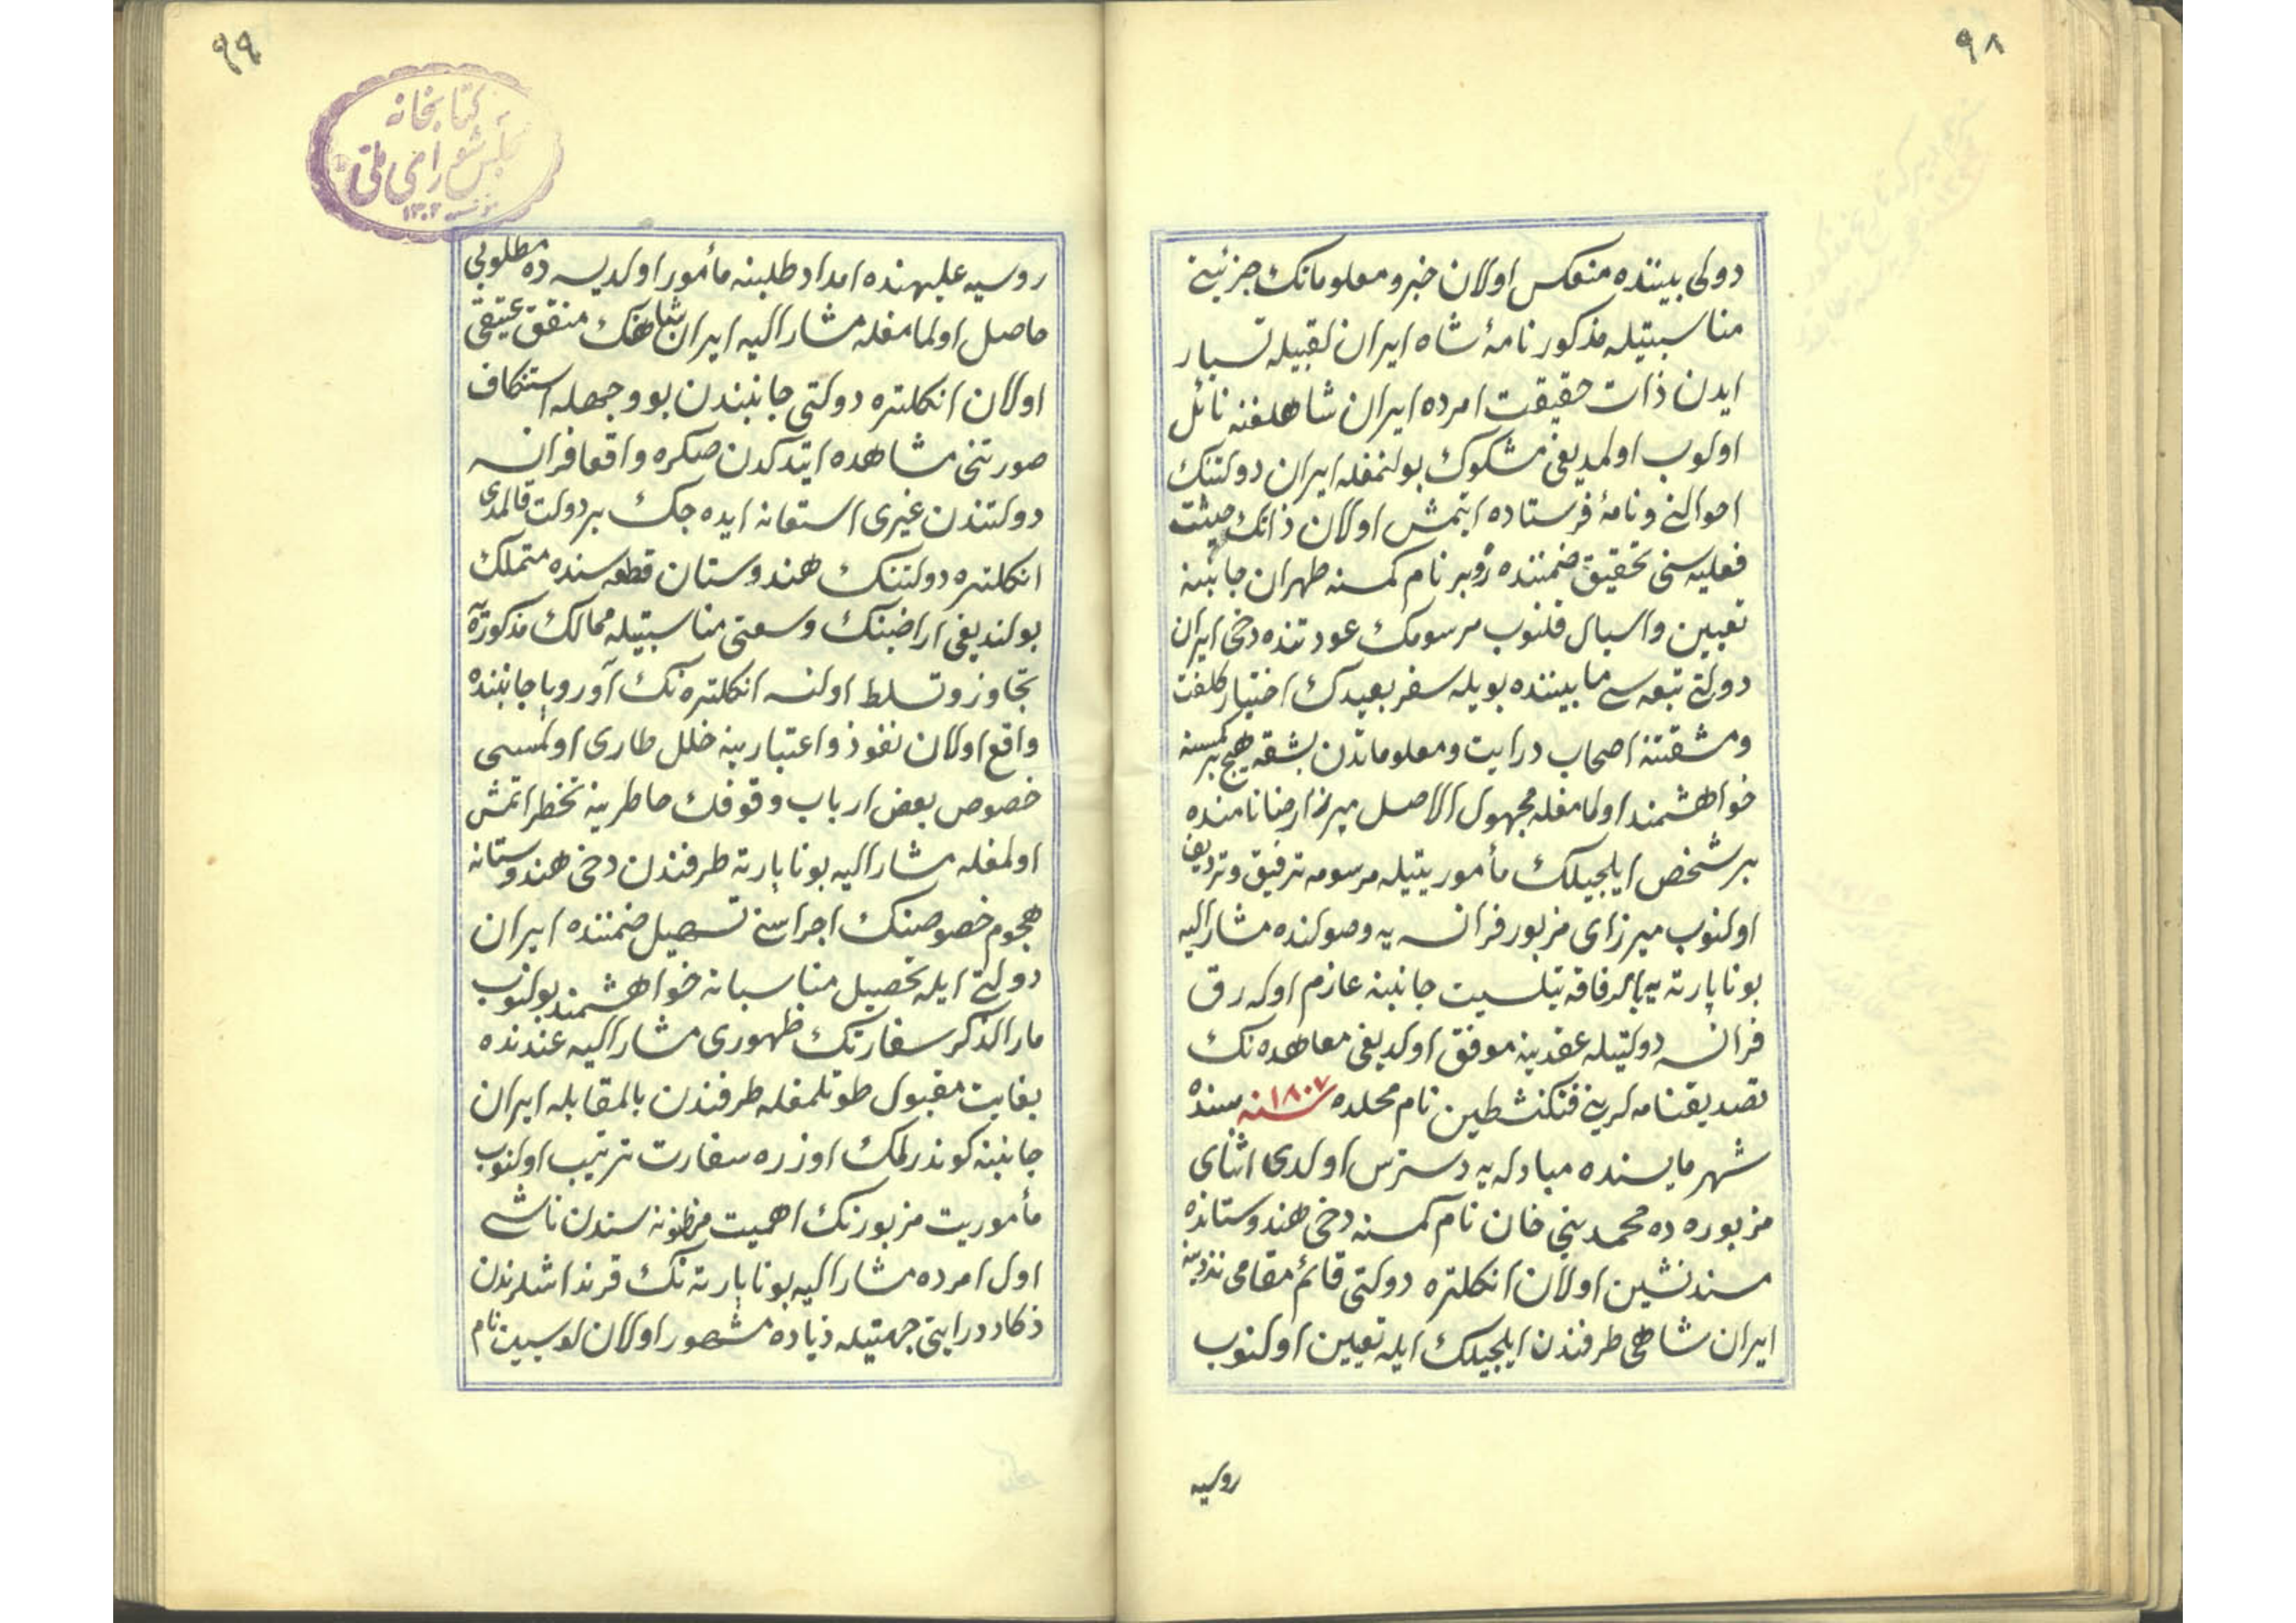 ٩٨
دولی بیننده منعکس اولان خبر و معلوماتک جزئیتی
مناسبتیله مذکور نامهٔ شاه ایران لقبیله تسیار
ایدن ذات حقیقت امرده ایران شاهلغنه نائل
اولوب اولمدیغی مشکوک بولنمغله ایران دولتنک
احوالنی و نامهٔ فرستاده ایتمش اولان ذاتک حیثیت
فعلیه سنی تحقیق ضمننده ژوبر نام کمسنه طهران جانبنه
تعیین و اسبال قلنوب مرسومک عودتنده دخی ایران
دولتی تبعه سی مابیننده بویله سفر بعیدک اختیار کلفت
و مشقتنه اصحاب درایت و معلوماتدن بشقه هیچ بر کمسنه
خواهشمند اولمامغله مجهول الاصل میرزا رضا نامنده
بر شخص ایلچیلک مأموریتیله مرسومه ترفیق و تردیف
اولنوب میرزای مزبور فرانسه یه وصولنده مشارالیه
بوناپارته یه بالرفاقه تیلسیت جانبنه عازم اوله رق
فرانسه دولتیله عقدینه موفق اولدیغی معاهده نک
تصدیقنامه لرینی فنکنشطین نام محلده ١٨٠٧ سنه سنده
شهر مایسنده مبادله یه دسترس اولدی اثنای
مزبوره ده محمد نبی خان نام کمسنه دخی هندوستانده
مسندنشین اولان انکلتره دولتی قائم مقامی نزدینه
ایران شاهی طرفندن ایلچیلک ایله تعیین اولنوب
روسیه
٩٩
کتابخانه
مجلس شورای ملی
روسیه علیهنده امداد طلبنه مأمور اولدیسه ده مطلوبی
حاصل اولمامغله مشارالیه ایران شاهنک متفق عتیقی
اولان انکلتره دولتی جانبندن بو وجهله استنکاف
صورتنی مشاهده ایتدکدن صکره واقعا فرانسه
دولتندن غیری استعانه ایده جک بر دولت قالمدی
انکلتره دولتنک هندوستان قطعه سنده متملک
بولندیغی اراضینک وسعتی مناسبتیله ممالک مذکوره
تجاوز و تسلط اولنسه انکلتره نک آوروپا جانبنده
واقع اولان نفوذ و اعتبارینه خلل طاری اولمسی
خصوص بعض ارباب وقوفک خاطرینه تخطر ایتمش
اولمغله مشارالیه بوناپارته طرفندن دخی هندوستانه
هجوم خصوصنک اجراسنی تسهیل ضمننده ایران
دولتی ایله تحصیل مناسباته خواهشمند بولنوب
مارالذکر سفارتک ظهوری مشارالیه عندنده
بغایت مقبول طوتلمغله طرفندن بالمقابله ایران
جانبنه کوندرلمک اوزره سفارت ترتیب اولنوب
مأموریت مزبورنک اهمیت مظنونه سندن ناشی
اول امرده مشارالیه بوناپارته نک قرنداشلرندن
ذکا و درایتی جهتیله زیاده مشهور اولان لوسین نام